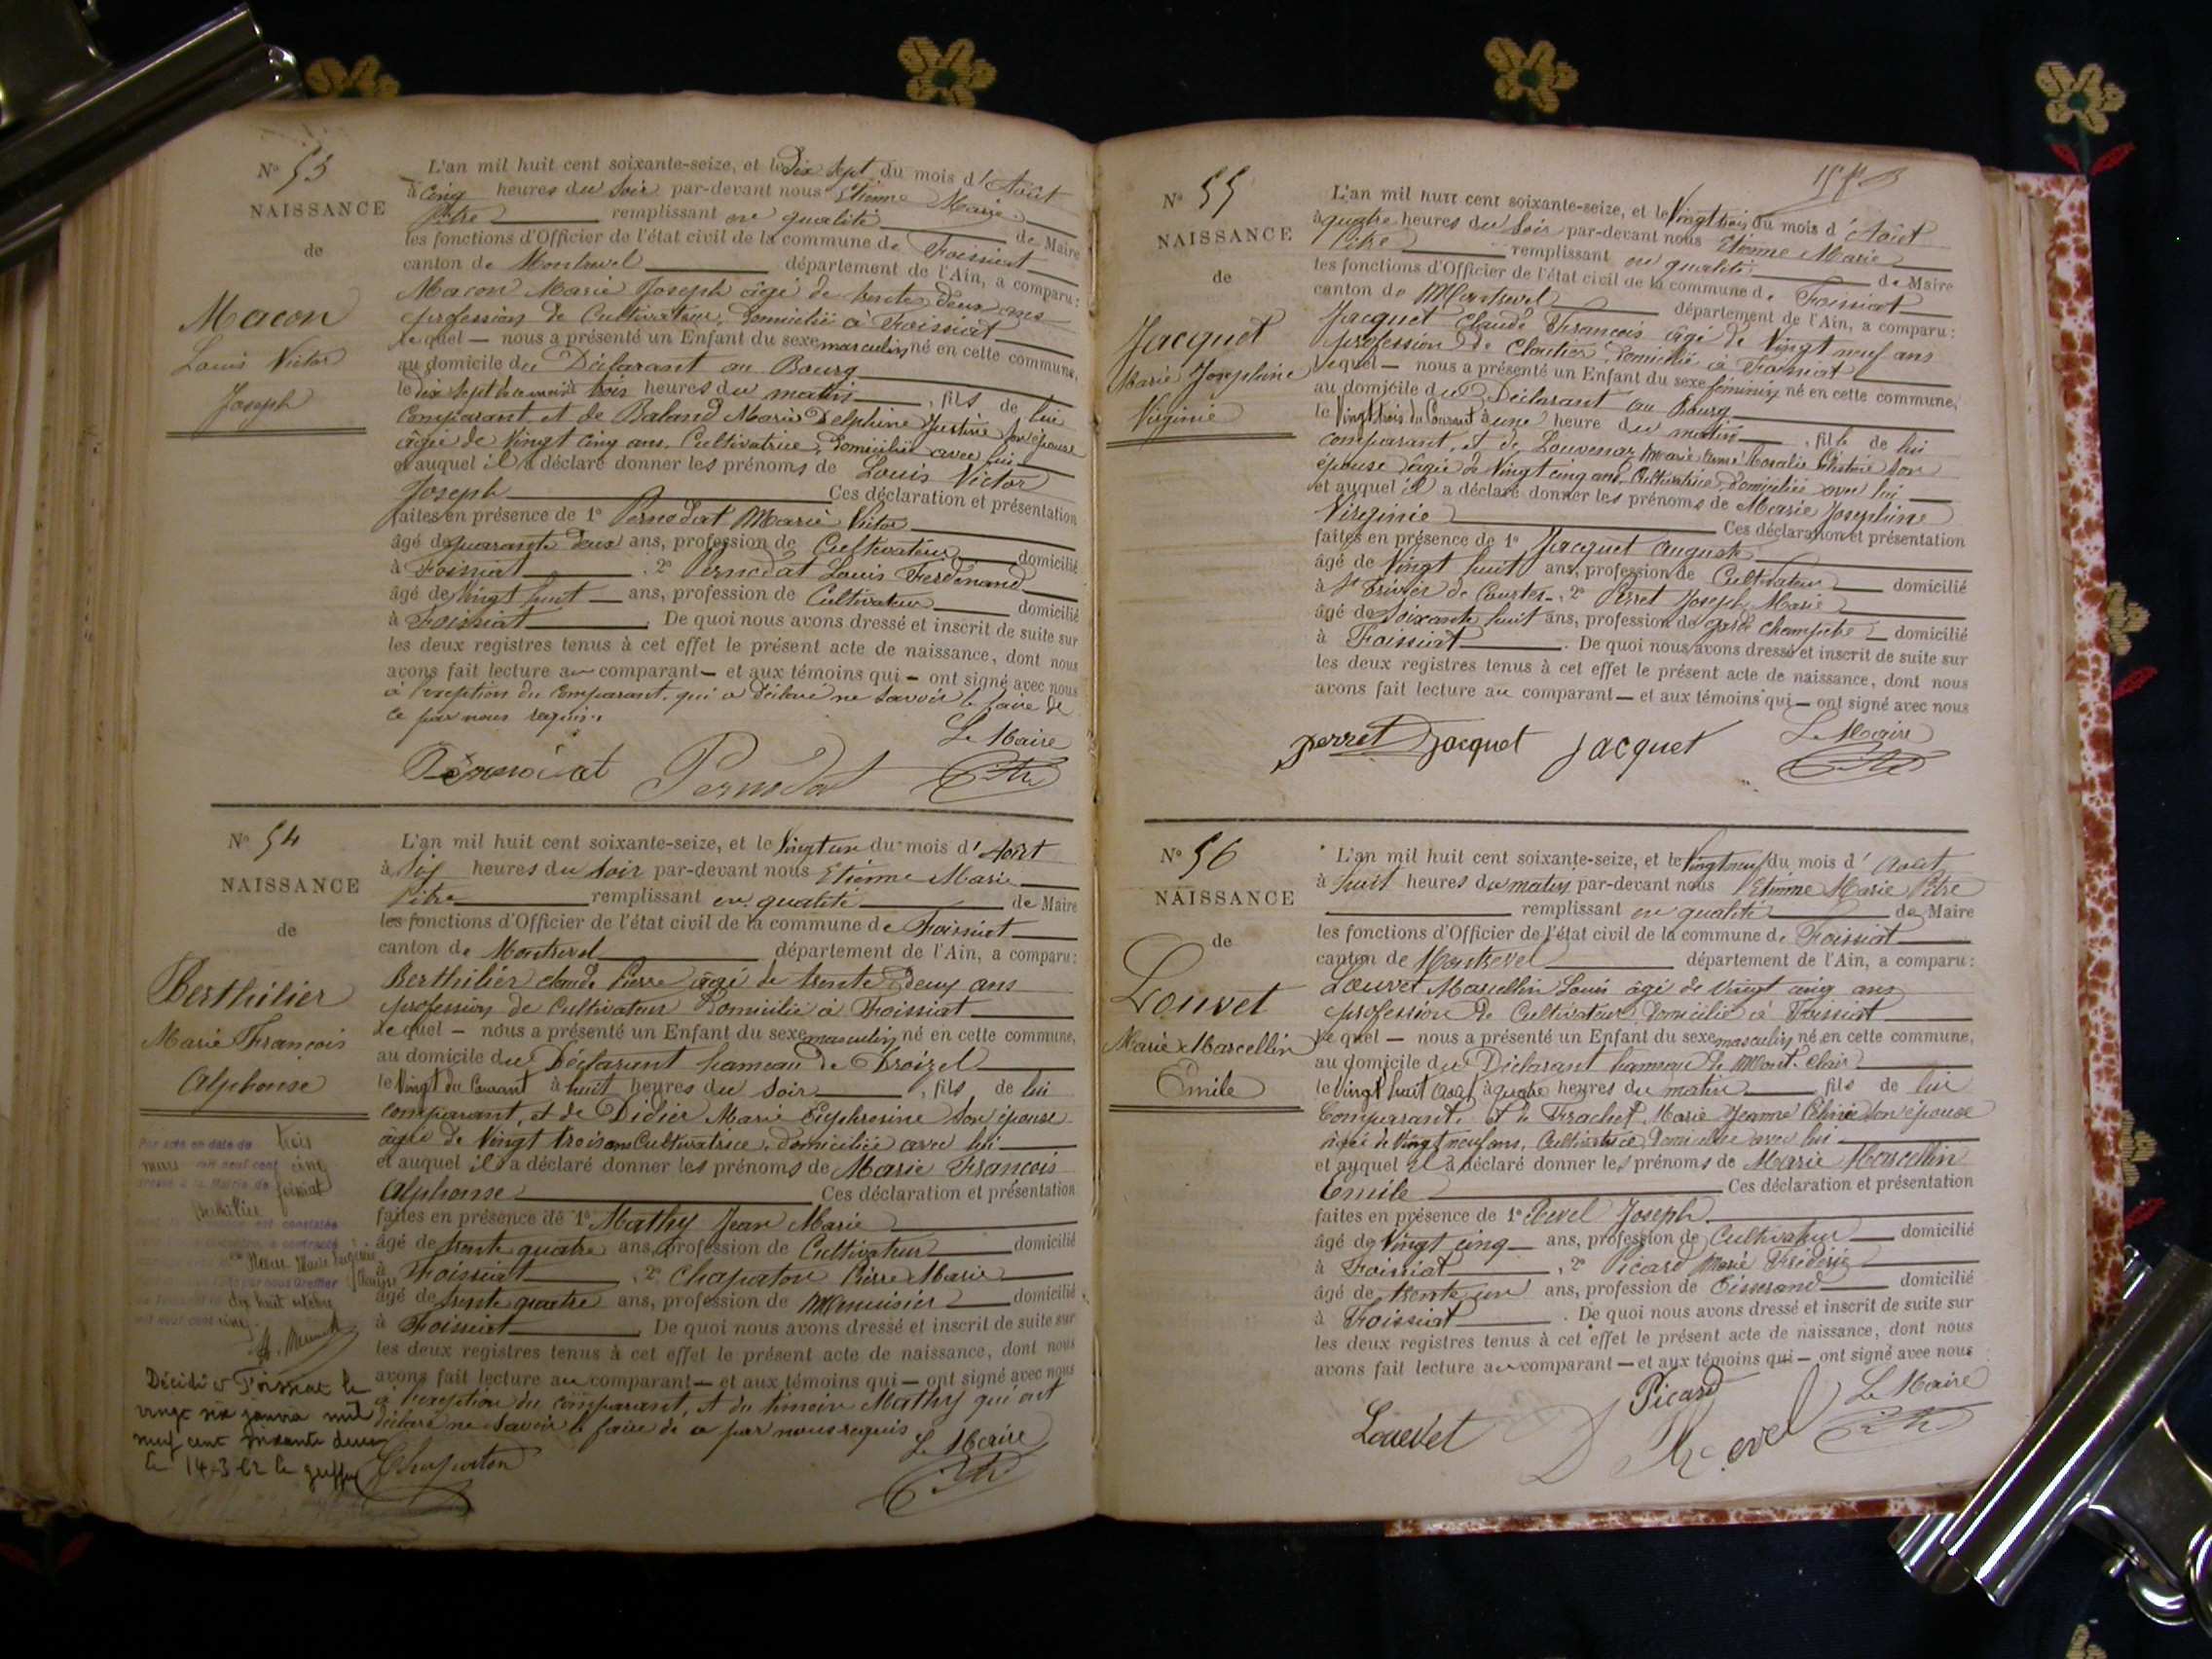 N° 53
NAISSANCE
de
Macon
Louis Victor
Joseph
L'an mil huit cent soixante-seize, et le Dix Sept du mois d'Août
à Cinq heures du Soir par-devant nous Etienne Marie
Pitre remplissant en qualité de Maire
les fonctions d'Officier de l'état civil de la commune de Foissiat
canton de Montrevel département de l'Ain, a comparu:
Macon Marie Joseph âgé de trente deux ans
profession de Cultivateur, Domicilié à Foissiat
lequel — nous a présenté un Enfant du sexe masculin né en cette commune,
au domicile du Déclarant au Bourg
le dix Sept trois heures du matin, fils de lui
Comparant et de Baland Marie Delphine Justine son épouse
âgée de Vingt cinq ans, Cultivatrice, Domiciliée avec lui
et auquel il a déclaré donner les prénoms de Louis Victor
Joseph Ces déclaration et présentation
faites en présence de 1° Pernodat Marie Victor
âgé de quarante deux ans, profession de Cultivateur domicilié
à Foissiat, 2° Pernodat Louis Ferdinand
âgé de Vingt huit ans, profession de Cultivateur domicilié
à Foissiat. De quoi nous avons dressé et inscrit de suite sur
les deux registres tenus à cet effet le présent acte de naissance, dont nous
avons fait lecture au comparant — et aux témoins qui — ont signé avec nous
à l'exception du Comparant, qui a déclaré ne savoir le faire de
ce par nous requis.
Le Maire
Pernodat Pernodat Pitre
N° 54
NAISSANCE
de
Berthilier
Marie François
Alphonse
Par acte en date du trois
mars mil neuf cent cinq
dressé à la Mairie de Foissiat
Berthilier
dix huit octobre
mil neuf cent cinq
Décédé à Foissiat le
vingt six janvier mil
neuf cent soixante deux
le 14-3-62 le greffier
L'an mil huit cent soixante-seize, et le Vingt un du mois d'Août
à Six heures du Soir par-devant nous Etienne Marie
Pitre remplissant en qualité de Maire
les fonctions d'Officier de l'état civil de la commune de Foissiat
canton de Montrevel département de l'Ain, a comparu:
Berthilier Claude Pierre âgé de trente Deux ans
profession de Cultivateur Domicilié à Foissiat
lequel — nous a présenté un Enfant du sexe masculin né en cette commune,
au domicile du Déclarant hameau de
le Vingt du Courant à huit heures du Soir, fils de lui
comparant, et de Didier Marie Euphrosine Son épouse
âgée de Vingt trois ans Cultivatrice, domiciliée avec lui
et auquel il a déclaré donner les prénoms de Marie François
Alphonse Ces déclaration et présentation
faites en présence de 1° Mathy Jean Marie
âgé de trente quatre ans, profession de Cultivateur domicilié
à Foissiat, 2° Chapaton Pierre Marie
âgé de trente quatre ans, profession de Menuisier domicilié
à Foissiat De quoi nous avons dressé et inscrit de suite sur
les deux registres tenus à cet effet le présent acte de naissance, dont nous
avons fait lecture au comparant — et aux témoins qui — ont signé avec nous
à l'exception du comparant, et du témoin Mathy qui ont
déclaré ne Savoir le faire de ce par nous requis
Le Maire
Chapaton Pitre
N° 55
NAISSANCE
de
Jacquet
Marie Joséphine
Virginie
L'an mil huit cent soixante-seize, et le Vingt trois du mois d'Août
à quatre heures du Soir par-devant nous Etienne Marie
Pitre remplissant en qualité de Maire
les fonctions d'Officier de l'état civil de la commune de Foissiat
canton de Montrevel département de l'Ain, a comparu:
Jacquet Claude François âgé de Vingt neuf ans
profession de Cloutier, Domicilié à Foissiat
lequel — nous a présenté un Enfant du sexe féminin né en cette commune,
au domicile du Déclarant au Bourg
le Vingt trois du Courant à une heure du matin, fille de lui
comparant, et de Marie Rosalie son
épouse âgée de Vingt cinq ans, Cultivatrice, Domiciliée avec lui
et auquel il a déclaré donner les prénoms de Marie Joséphine
Virginie Ces déclaration et présentation
faites en présence de 1° Jacquet Auguste
âgé de Vingt huit ans, profession de Cultivateur domicilié
à St Trivier de Courtes, 2° Perret Joseph Marie
âgé de Soixante huit ans, profession de garde champêtre domicilié
à Foissiat. De quoi nous avons dressé et inscrit de suite sur
les deux registres tenus à cet effet le présent acte de naissance, dont nous
avons fait lecture au comparant — et aux témoins qui — ont signé avec nous
Le Maire
perret Jacquet Jacquet Pitre
N° 56
NAISSANCE
de
Louvet
Marie Marcellin
Emile
L'an mil huit cent soixante-seize, et le Vingt neuf du mois d'Août
à huit heures du matin par-devant nous Etienne Marie Pitre
remplissant en qualité de Maire
les fonctions d'Officier de l'état civil de la commune de Foissiat
canton de Montrevel département de l'Ain, a comparu:
Louvet Marcellin Louis âgé de Vingt cinq ans
profession de Cultivateur Domicilié à Foissiat
lequel — nous a présenté un Enfant du sexe masculin né en cette commune,
au domicile du Déclarant hameau de Mont-Clair
le Vingt huit Août à quatre heures du matin fils de lui
Comparant, et de Frachet Marie Jeanne son épouse
âgée de Vingt neuf ans, Cultivatrice Domiciliée avec lui
et auquel il a déclaré donner les prénoms de Marie Marcellin
Emile Ces déclaration et présentation
faites en présence de 1° Revel Joseph
âgé de Vingt cinq ans, profession de Cultivateur domicilié
à Foissiat, 2° Picard Marie Frédéric
âgé de trente un ans, profession de Tisserand domicilié
à Foissiat. De quoi nous avons dressé et inscrit de suite sur
les deux registres tenus à cet effet le présent acte de naissance, dont nous
avons fait lecture au comparant — et aux témoins qui — ont signé avec nous
Le Maire
Louvet Picard Revel Pitre